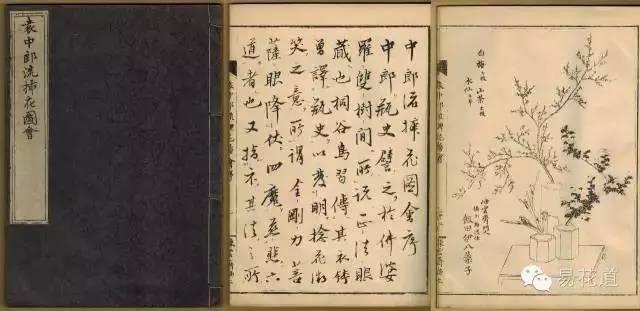 袁中郎流揷花圖會
中郎流揷花圖會序
中郎瓶史譬之於佛娑
羅雙樹間所說正法眼
藏也桐谷鳥習傳其衣鉢
譯瓶史以發明捻花微
笑之意所謂金剛力菩
薩眼降伏四魔慈悲六
道者也又其法之所
白梅 山茶
水仙
飯田伊八葉子
易花道